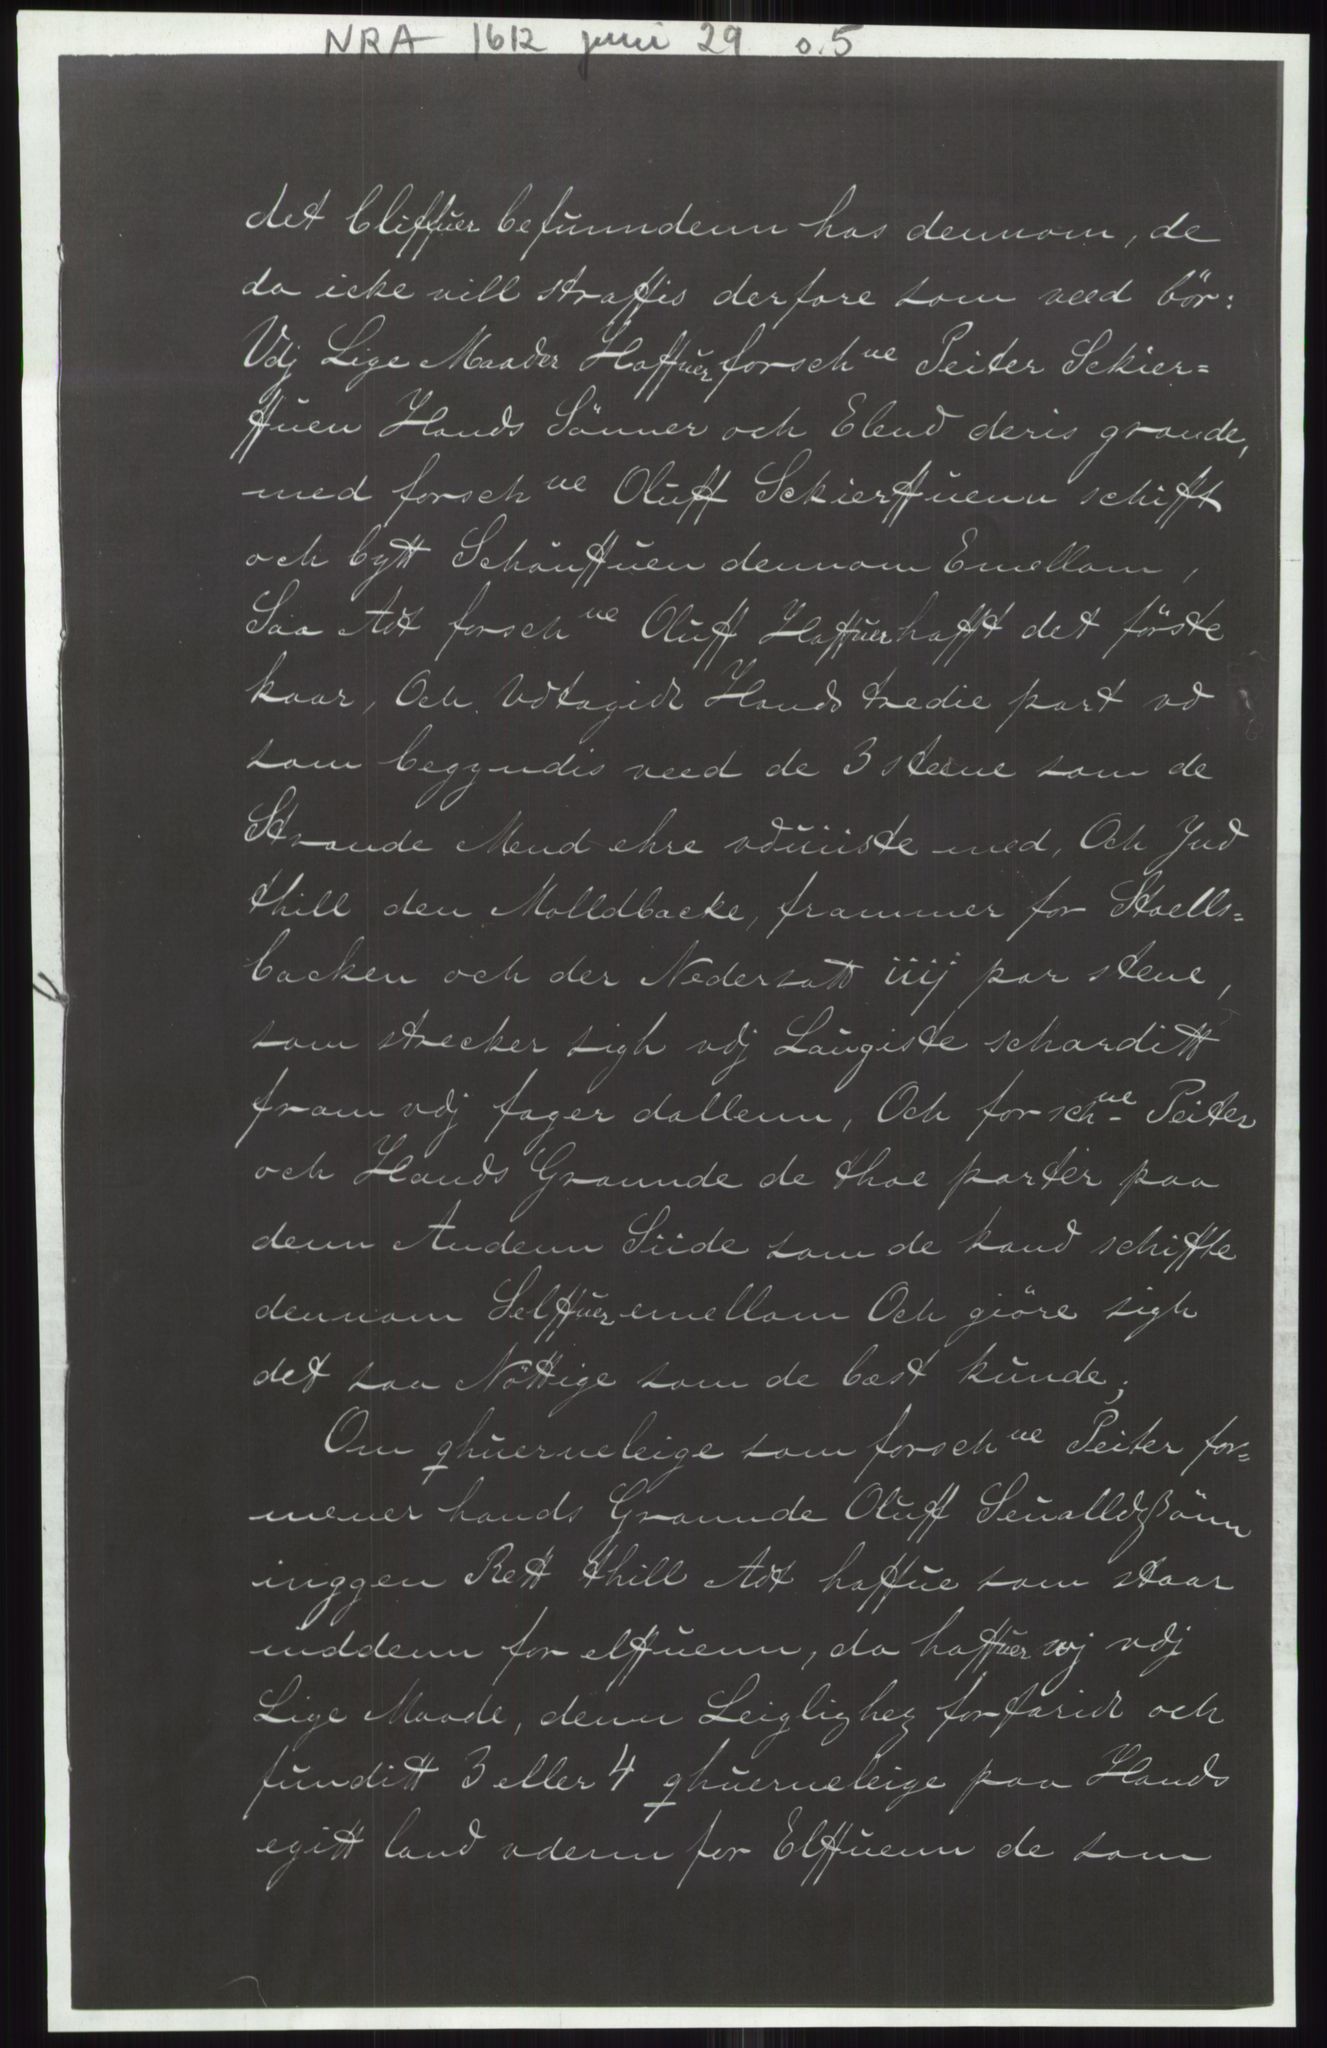 NRA 1612 juni 29 o. 5
det bliffuer befunndenn hos dennom, de
da icke vill straffis derfore som veed bör:
Vdj Lige Maader Haffuer forsch ne Peiter Sckier=
ffuen Hands Sönner och Elend deris grande,
med forsch ne Oluff Sckierffuenn schifft
och bytt Schouffuen dennom Emellom,
Saa Att forsch ne Oluff Haffuer hafft det förste
kaar, Och vdtagidt Hands tredie part vd
som begyndis veed de 3 steene som de
Strande Mend ehre vduiiste med, Och Jnd
thill den Molldbacke, frammer for Stoells=
backen och der Nedersatt iiij par stene,
som strecker sigh vdj Laugiste scharditt
fram vdj fager dallenn, Och forsch ne Peiter
och Hands Grannde de thoe parter paa
denn Andenn Siide som de kand schiffte
dennom Selffuer emellom Och giöre sigh
det saa Nöttige som de best kunde;
Om qhuerneleige som forsch ne Peiter for=
mener hands Grannde Oluff Seualldßönn
inggen Rett thill Att haffue som staar
inddenn for elffuenn, da haffuer wj vdj
Lige Maade, denn Leiglighez forfaridt och
funditt 3 eller 4 qhuerneleige paa Hands
egitt land vdenn for Elffuenn de som